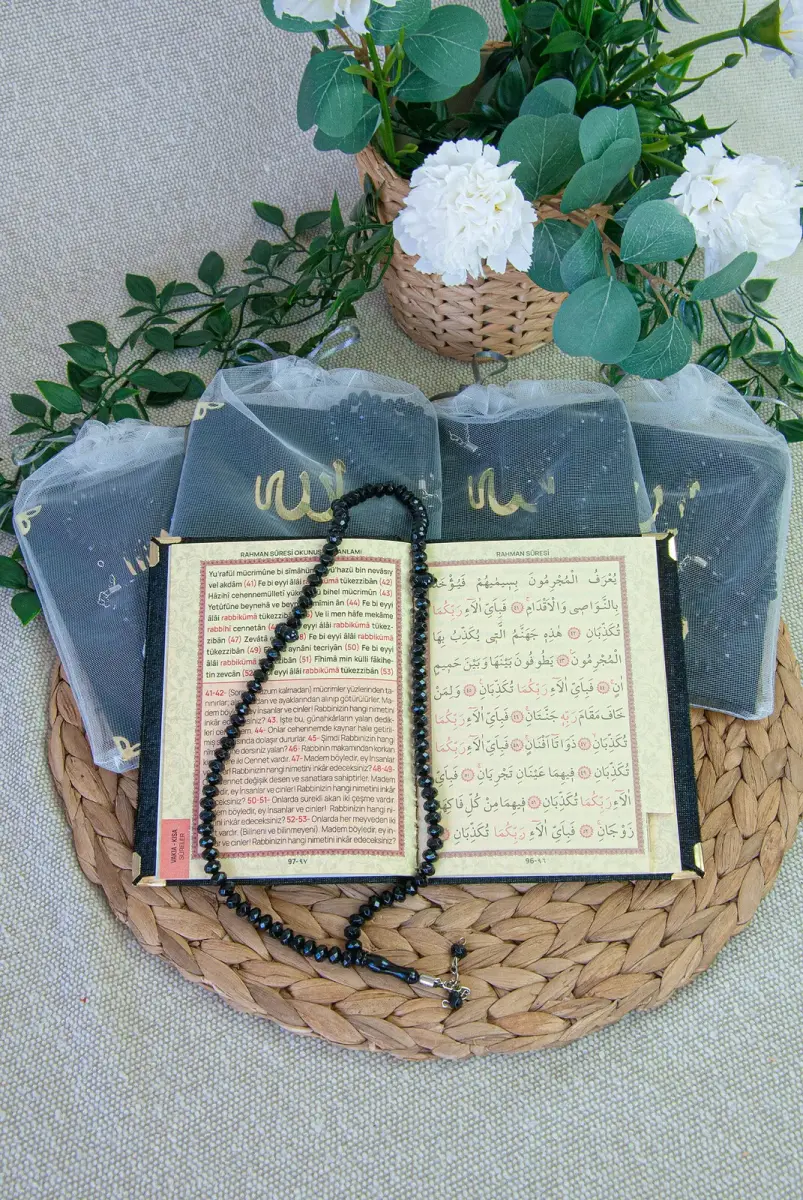 RAHMAN SÛRESİ OKUNUŞ ANLAMI
Yu'rafül mücrimûne bi sîmâhüm hazü bin nevâsıy
vel akdâm (41) Fe bi eyyi âlâi kümâ tükezzibân (42)
Hâzihî cehennemülleti y binel mücrimûn (43)
Yetûfûne beynehâ ve bey min ân (44) Fe bi eyyi
âlâi rabbikümâ tükezzi Ve li men hâfe mekâme
rabbihî cennetân âlâi rabbikümâ tükez-
zibân (47) Zevâtâ Fe bi eyyi âlâi rabbikümâ
tükezzibân (49) aynâni tecriyân (50) Fe bi eyyi
âlâi rabbikümâ tükezzibân (51) Fîhimâ min külli fâkihe-
tin zevcân (52 eyyi âlâi rabbikümâ tükezzibân (53)
41-42- (Sor lüzum kalmadan) mücrimler yüzlerinden ta-
nınırlar, al en ve ayaklarından alınıp götürülürler. Ma-
dem böyledir, ey İnsanlar ve cinler! Rabbinizin hangi nimetini
inkâr edeceksiniz? 43. İşte bu, günahkârların yalan dedik-
leri cehen 44- Onlar cehennemde kaynar hale getiril-
miş sında dolaşır dururlar. 45- Şimdi Rabbinizin hangi
nime dersiniz yalan? 46- Rabbinin makamından korkan
iki Cennet vardır. 47- Madem böyledir, ey İnsanlar
ve ci ! Rabbinizin hangi nimetini inkâr edeceksiniz? 48-49-
cennet değişik desen ve sanatlara sahiptirler. Madem
böyledir, ey İnsanlar ve cinler! Rabbinizin hangi nimetini inkâr
edeceksiniz? 50-51- Onlarda sürekli akan iki çeşme vardır.
dem böyledir, ey İnsanlar ve cinler! Rabbinizin hangi nime-
ni inkâr edeceksiniz? 52-53- Onlarda her meyveden iki
vardır. (Bilineni ve bilinmeyeni). Madem böyledir, ey in-
ve cinler! Rabbinizin hangi nimetini inkâr edeceksiniz?
VAKIA - KISA
SÛRELER
97-٩٧
RAHMAN SÛRESİ
يُعْرَفُ الْمُجْرِمُونَ بِسِيمٰيهُمْ فَيُؤْخَذُ
بِالنَّوَاصِي وَالْاَقْدَامِ ﴿٤١﴾ فَبِاَيِّ اٰلَٓاءِ رَبِّكُمَا
تُكَذِّبَانِ ﴿٤٢﴾ هٰذِهِ جَهَنَّمُ الَّتِي يُكَذِّبُ بِهَا
الْمُجْرِمُونَ ﴿٤٣﴾ يَطُوفُونَ بَيْنَهَا وَبَيْنَ حَمِيمٍ
اٰنٍ ﴿٤٤﴾ فَبِاَيِّ اٰلَٓاءِ رَبِّكُمَا تُكَذِّبَانِ ﴿٤٥﴾ وَلِمَنْ
خَافَ مَقَامَ رَبِّهِ جَنَّتَانِ ﴿٤٦﴾ فَبِاَيِّ اٰلَٓاءِ رَبِّكُمَا
تُكَذِّبَانِ ﴿٤٧﴾ ذَوَاتَٓا اَفْنَانٍ ﴿٤٨﴾ فَبِاَيِّ اٰلَٓاءِ رَبِّكُمَا
تُكَذِّبَانِ ﴿٤٩﴾ فِيهِمَا عَيْنَانِ تَجْرِيَانِ ﴿٥٠﴾ فَبِاَيِّ
اٰلَٓاءِ رَبِّكُمَا تُكَذِّبَانِ ﴿٥١﴾ فِيهِمَا مِنْ كُلِّ فَاكِهَةٍ
زَوْجَانِ ﴿٥٢﴾ فَبِاَيِّ اٰلَٓاءِ رَبِّكُمَا تُكَذِّبَانِ ﴿٥٣﴾
96-٩٦